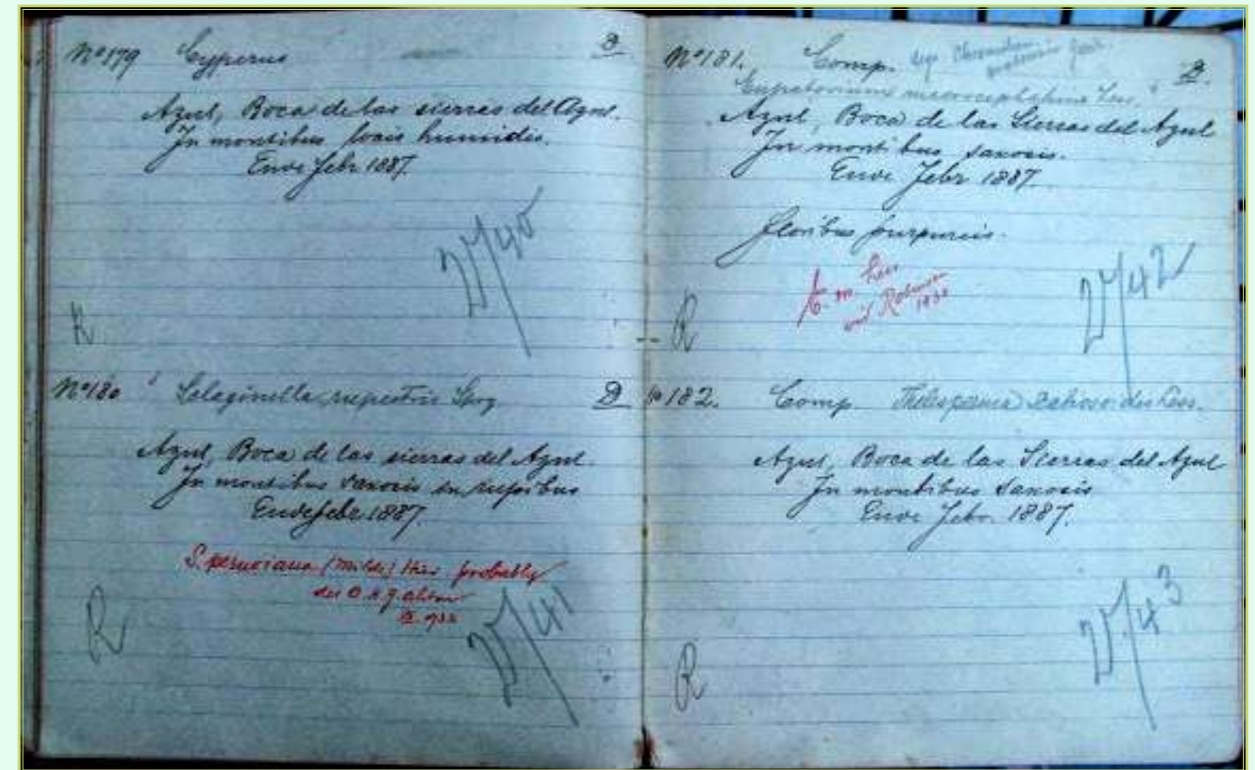 Nº 179 Cyperus D.
Azul, Boca de las sierras del Azul.
In montibus locis humidis.
Enve febr 1887.
V/40
R
Nº 180 Selaginella rupestris Sprg D
Azul, Boca de las sierras del Azul.
In montibus saxosis in rupibus
Enve febr 1887.
S. peruviana (Milde) Hier. probably
V/41
R
Nº 181. Comp. D.
Eupatorium macrocephalum Less.
Azul, Boca de las Sierras del Azul
In montibus saxosis.
Enve Febr 1887.
floribus purpureis.
E. m. Less
Robinson
V/42
R
Nº 182. Comp. Less.
Azul, Boca de las Sierras del Azul
In montibus saxosis
Enve Febr. 1887.
V/43
R